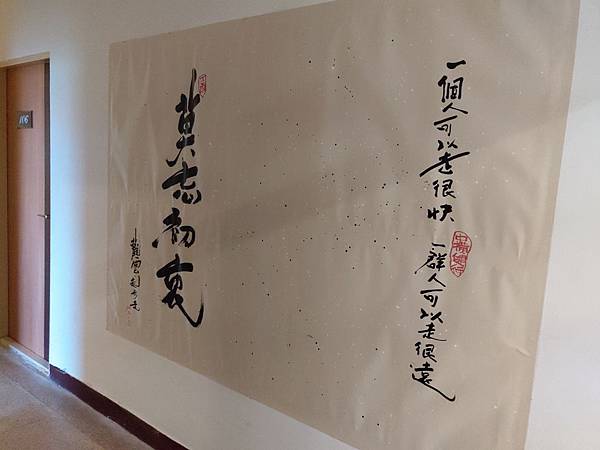 一個人可以走很快
一群人可以走很遠
莫忘初衷
106